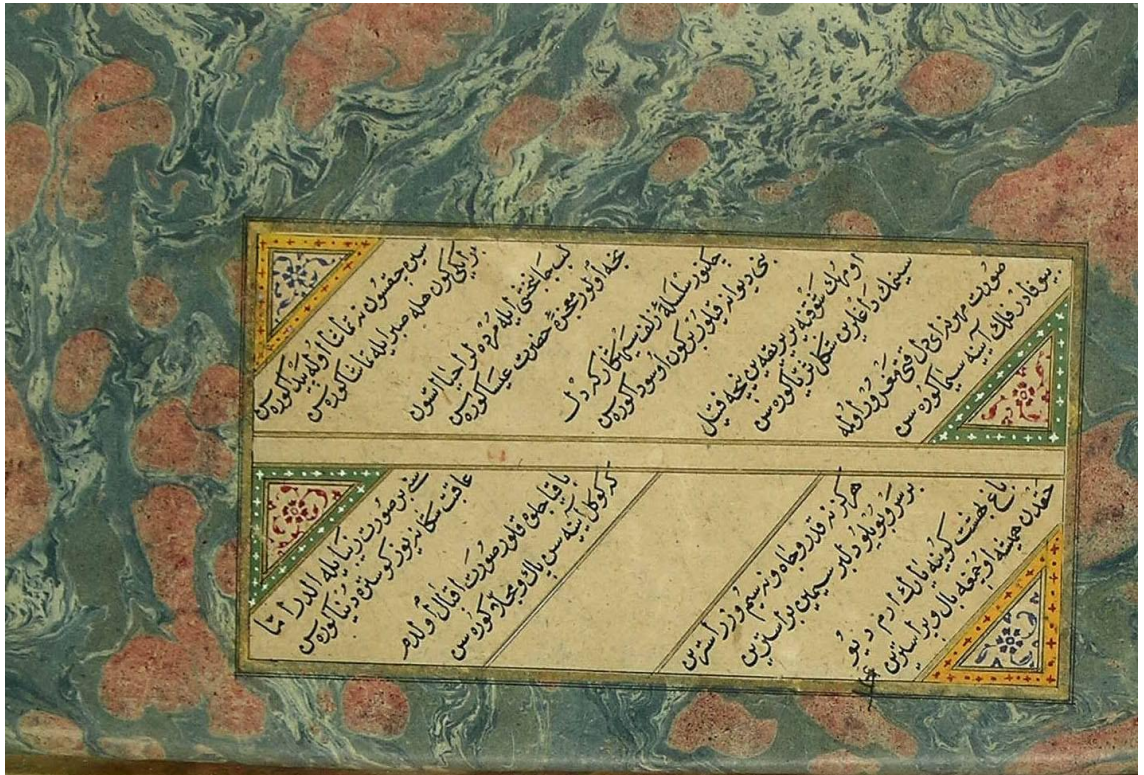 صورت مهرنه ای دل قتی مغرور اولمه
بیوفادر فلك آینه سیما كوره سن
او مهك شوقیله یر یر یقه ین نیچه فتیل
سینه مك داغلرین شكل ثریا كوره سن
چكنور سلسلهٔ زلف سیهكارکه دل
بنی دیوانه قیلور بر كون او سودا كوره سن
لب جانبخشی ایله مرده لر احیا ایتسون
نجه اولور معجزهٔ حضرت عیسا كوره سن
سیره چقسون نه تماشا اوله پیدا كوره سن
بر ایكی كون هله صبر ایله تماشا كوره سن
باغ بهشت كوینه یارك ارم دیو
حقدن همیشه اوچمغه بال و پر استرین
هركز نه قدر و جاه و نه سیم و زر استرین
بر سرو بویلو دلبر سیمین بر استرین
باقیا جلی قلور صورت اقبال اولدم
كه كوكل آینه سن پاك و مجلا كوره سن
سنی بر صورت زیبا ایله الدر اما
عاقبت سكا نه یوز كوستره دنیا كوره سن